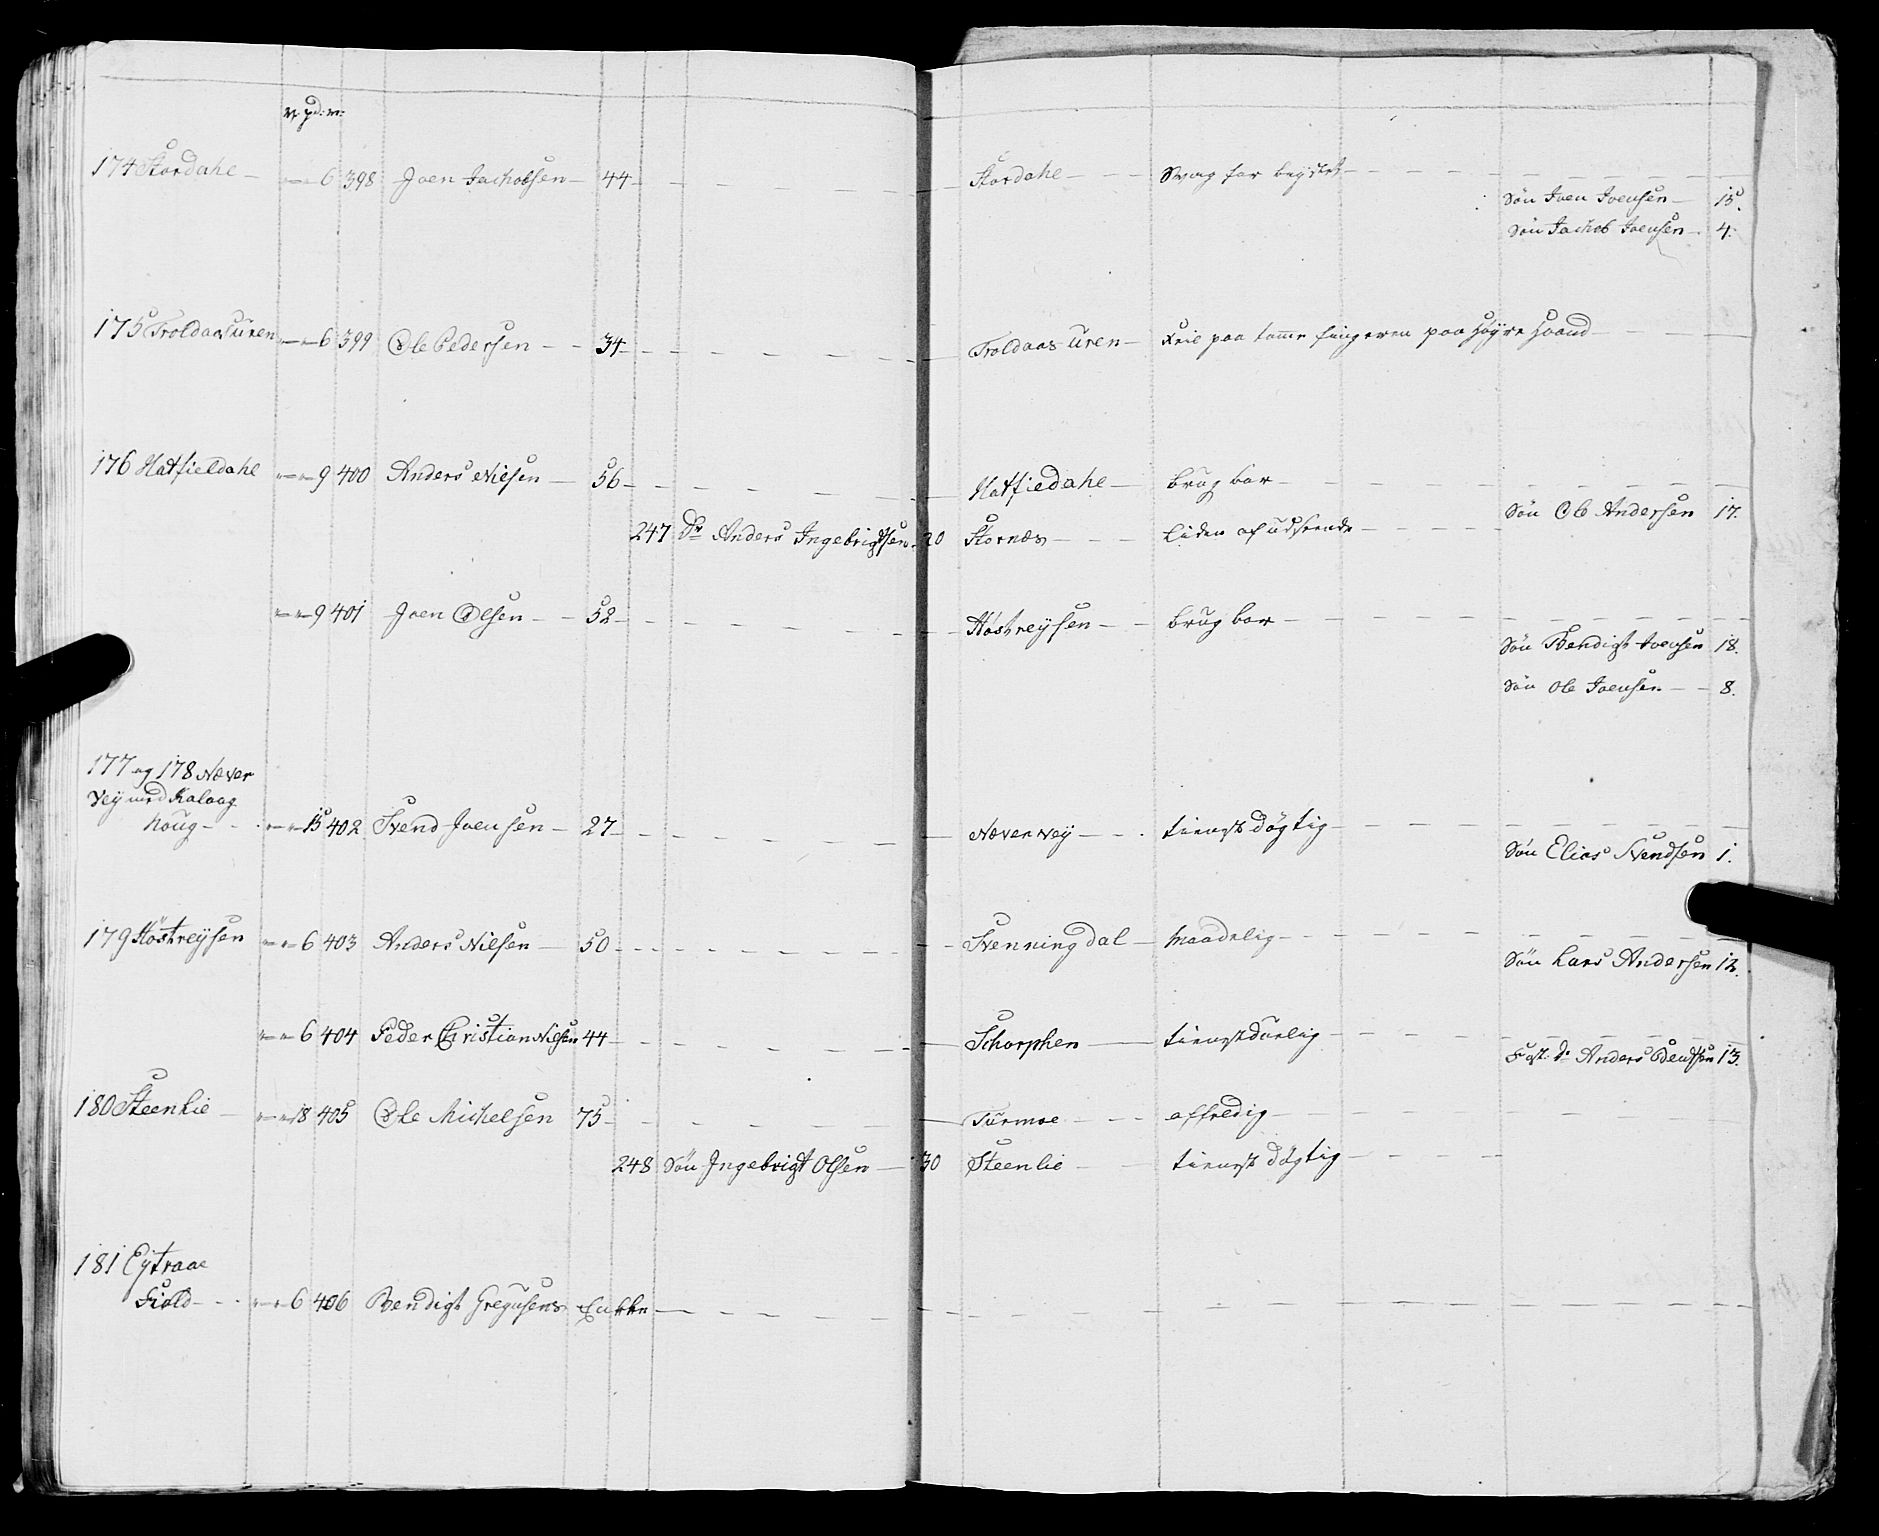 v. pd. m:
174 Stordahl — " — " — 6 398 Joen Jachobsen — 44 — Stordahl — Svag for brystet —
Søn Joen Joensen — 15.
Søn Jachob Joensen — 4.
175 Troldaasuren " — " — 6 399 Ole Pedersen — 34 — Troldaas uren — paa tomme fingeren paa Høyre Haand —
176 Hatfieldahl " — " — 9 400 Anders Nielsen — 56 — Hatfiedahl — brugbar —
Søn Ole Andersen 17.
247 Dr Anders Ingebrigtsen 20 Stornæs — Liden af udseende —
" — " — 9 401 Joen Olsen — 52 — Høstreysen — brugbar —
Søn Bendigt Joensen 18.
Søn Ole Joensen — 8.
177 og 178 Næver
Vey med Kalaag
houg — " — " — 15 402 Svend Joensen — 27 — Næver vey — tienst døgtig —
Søn Elias Svendsen 1.
179 Høstreysen " — " — 6 403 Anders Nilsen — 50 — Svenningdal — maadelig —
Søn Lars Andersen 12.
" — " — 6 404 Peder Christian Nilsen 44 — Schorphen — tienstdurlig —
Fost. Dr Anders Bentsen 13.
180 Steenlie — " — " 18 405 Ole Michelsen 75 — Turmoe — affeldig —
248 Søn Ingebrigt Olsen — 30 Steenlie — tienst døgtig —
181 Eytraae
Fiold — " — " — 6 406 Bendigt Gregusens Enkke —